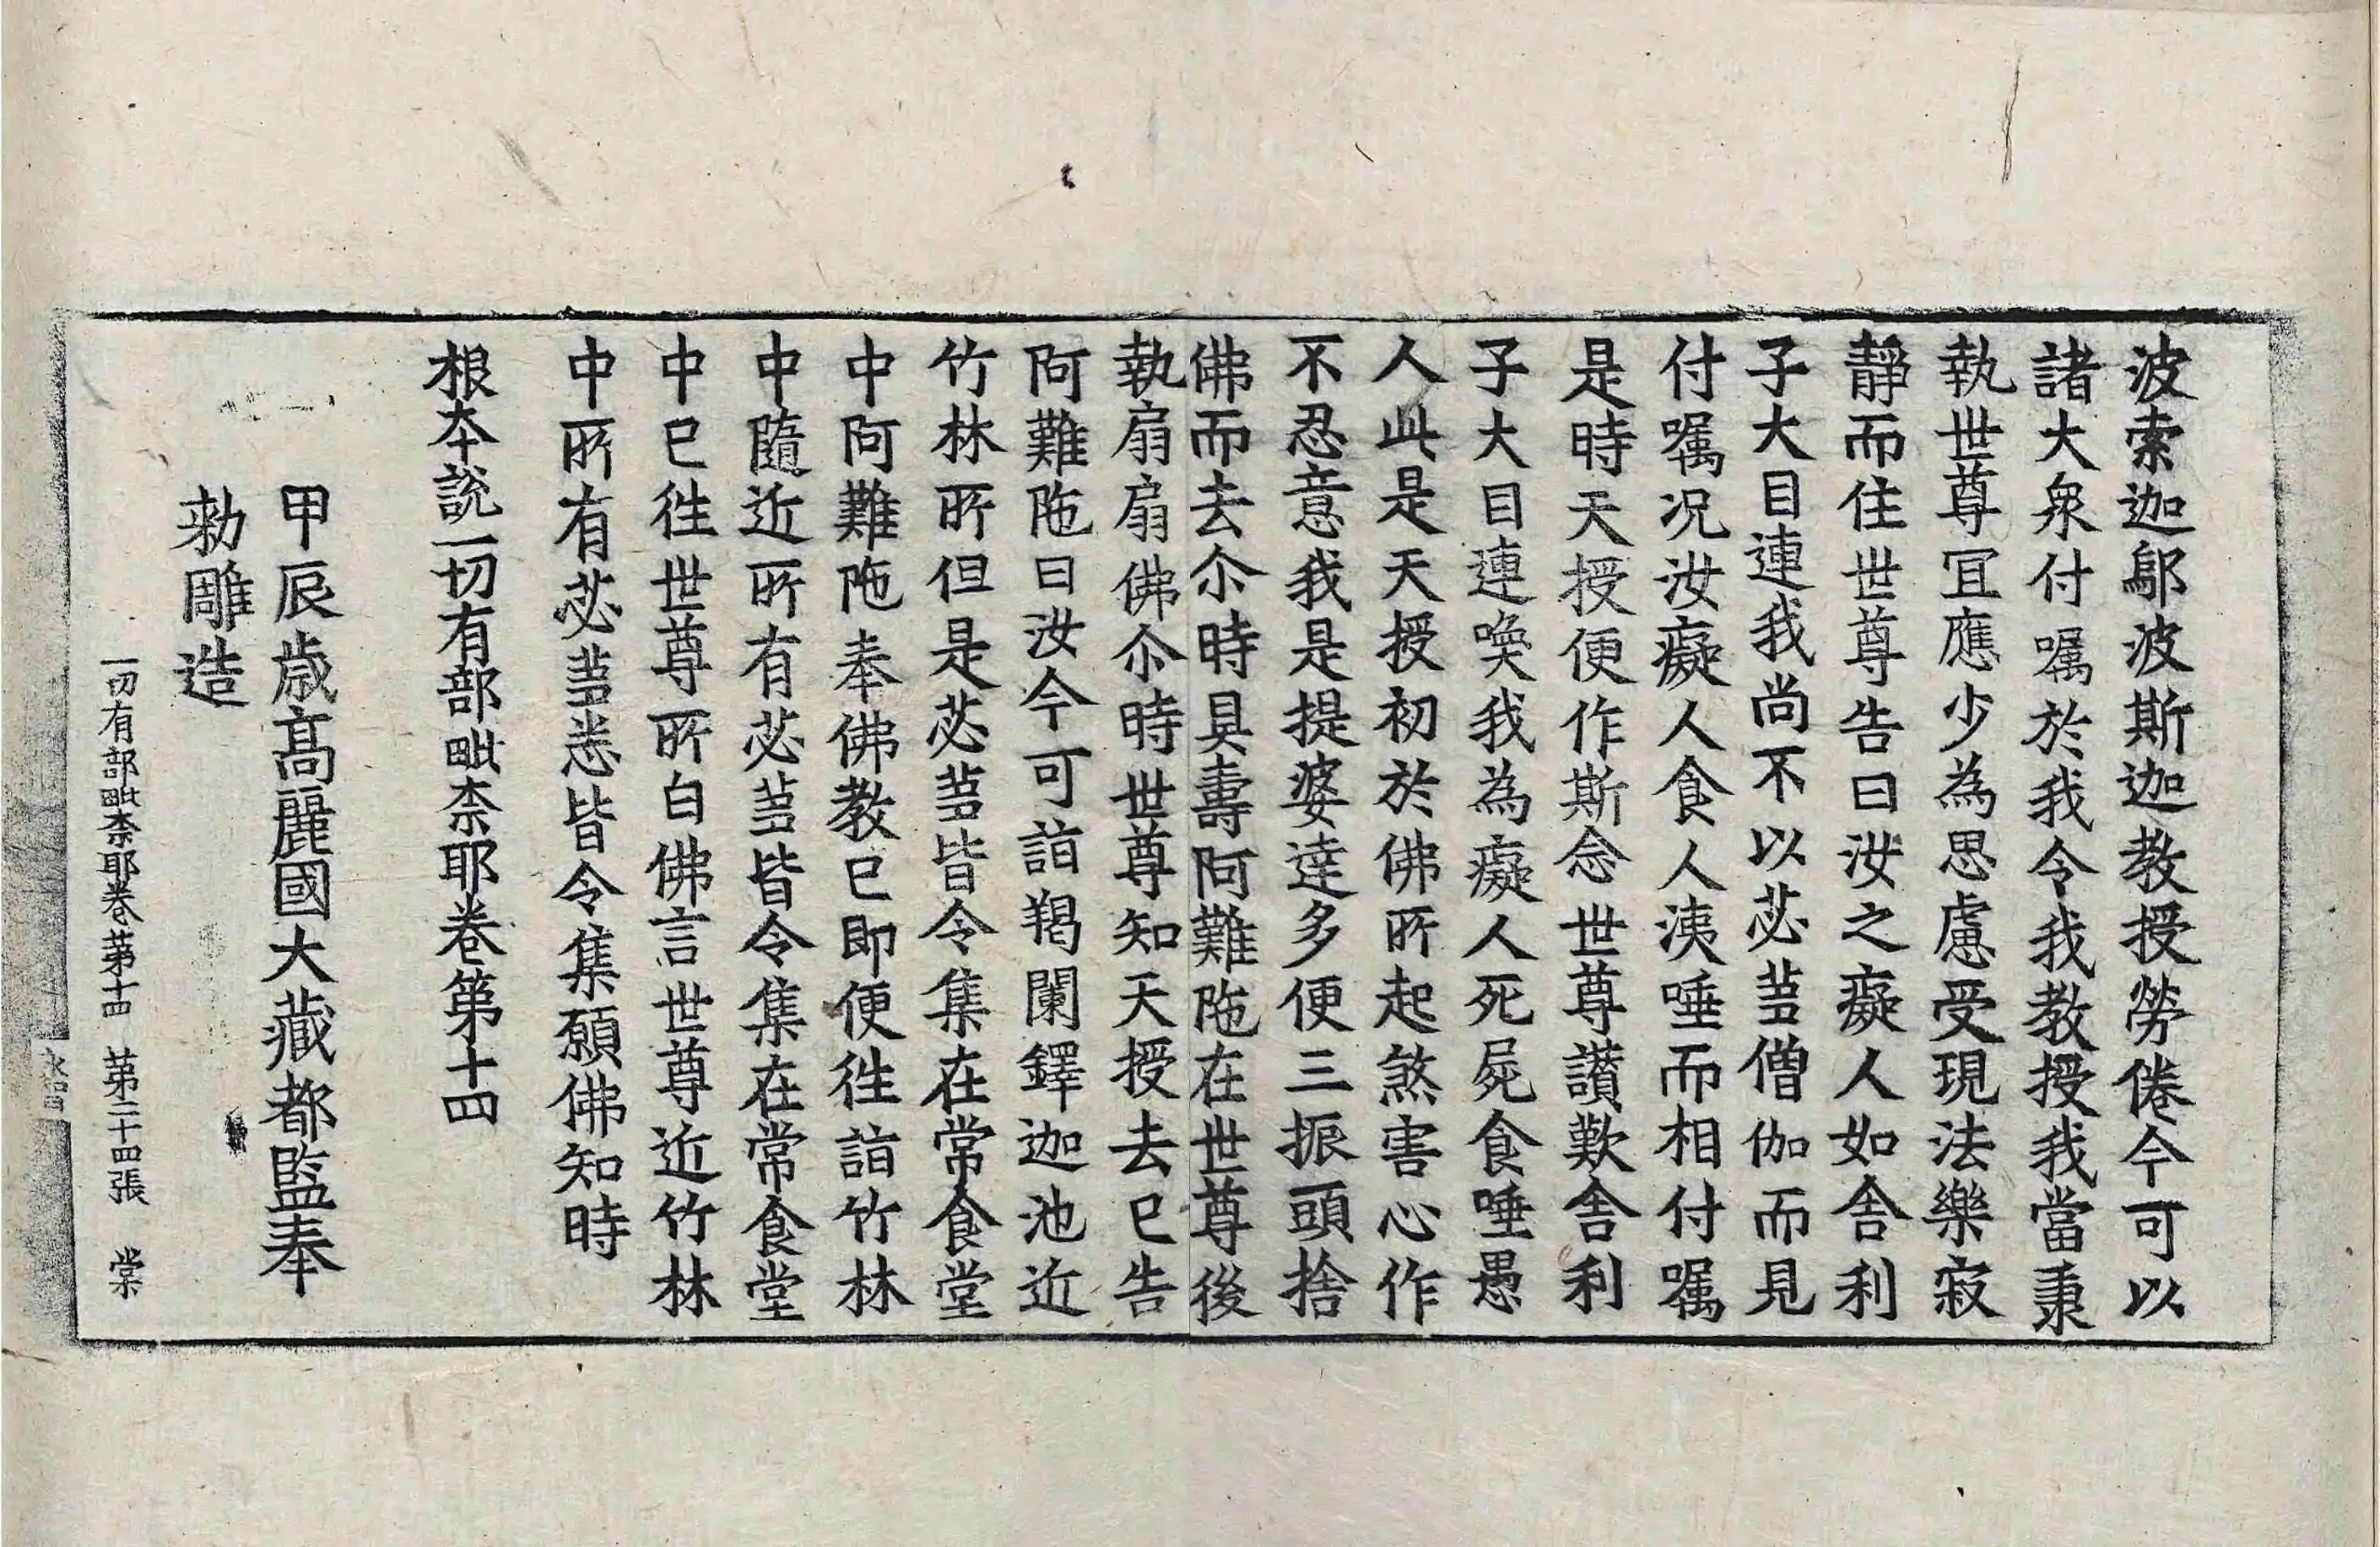 波索迦鄔波斯迦教授勞倦今可以
諸大衆付囑於我令我教授我當秉
執世尊冝應少為思慮受現法樂寂
靜而住世尊告曰汝之癡人如舎利
子大目連我尚不以苾蒭僧伽而見
付囑况汝癡人食人洟唾而相付囑
是時天授便作斯念世尊讃歎舎利
子大目連喚我為癡人死屍食唾愚
人此是天授初於佛所起煞害心作
不忍意我是提婆達多便三振頭捨
佛而去尒時具壽阿難陁在世尊後
執扇扇佛尒時世尊知天授去已告
阿難陁曰汝今可詣羯闌鐸迦池近
竹林所但是苾蒭皆令集在常食堂
中阿難陁奉佛教已即便徃詣竹林
中隨近所有苾蒭皆令集在常食堂
中已徃世尊所白佛言世尊近竹林
中所有苾蒭悉皆令集願佛知時
根本說一切有部毗柰耶卷第十四
甲辰歳髙麗國大藏都監奉
勅雕造
一切有部毗柰耶卷第十四 第二十四張 棠